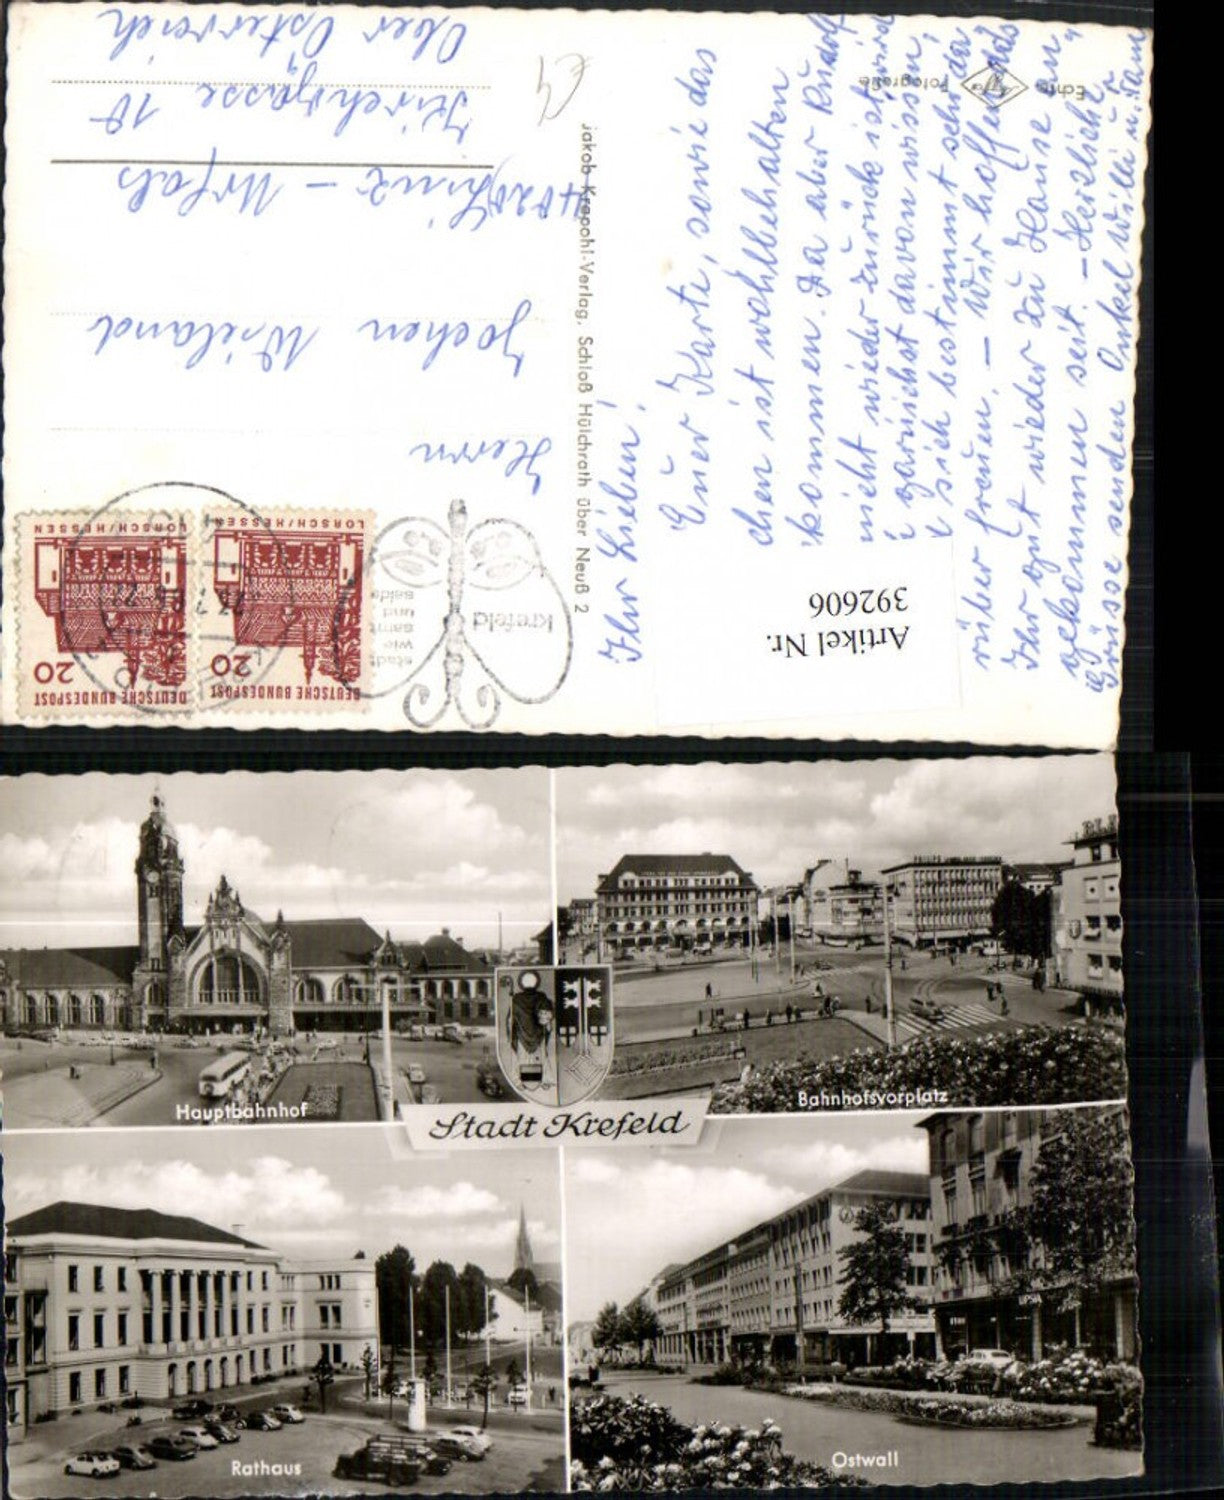 Echte Agfa Fotografie
Ihr Lieben!
Euer Karte, sowie das
chen ist wohlbehalten
kommen. Da aber Rudolf
nicht wieder zurück ist, wird
garnichst davon wissen,
sich bestimmt sehr da
rüber freuen. – Wir hoffen das
Ihr gut wieder zu Hause an
gekommen seit. – Herzliche
Grüsse senden Onkel Willi u.
Artikel Nr.
392606
Jakob Krapohl-Verlag, Schloß Hülchrath über Neuß 2
DEUTSCHE BUNDESPOST
20
LORSCH/HESSEN
DEUTSCHE BUNDESPOST
20
LORSCH/HESSEN
krefeld
stadt
wie
samt
und
seide
Herrn
Jochen Wieland
4020 Linz – Urfah
Kirchgasse 10
Ober Österreich
Hauptbahnhof
Bahnhofsvorplatz
Stadt Krefeld
Rathaus
Ostwall